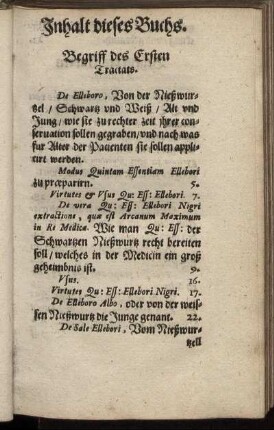 Inhalt dieses Buchs.
Begriff des Ersten
Tractats.
De Elleboro, Von der Nießwur-
tzel / Schwartz vnd Weiß / Alt vnd
Jung / wie sie zu rechter zeit ihrer con-
seruation sollen gegraben / vnd nach was
für Alter der Patienten sie sollen appli-
cirt werden.
Modus Quintam Essentiam Ellebori
zu præparirn. 5.
Virtutes & Vsus Qu: Ess: Ellebori. 7.
De vera Qu: Ess: Ellebori Nigri
extractione, quæ est Arcanum Maximum
in Re Medica. Wie man Qu: Ess: der
Schwartzen Nießwurtz recht bereiten
soll / welches in der Medicin ein groß
geheimbnus ist. 9.
Vsus. 16.
Virtutes Qu: Ess: Ellebori Nigri. 17.
De Elleboro Albo, oder von der weis-
sen Nießwurtz die Junge genant. 22.
De Sale Ellebori, Vom Nießwur-
tzell